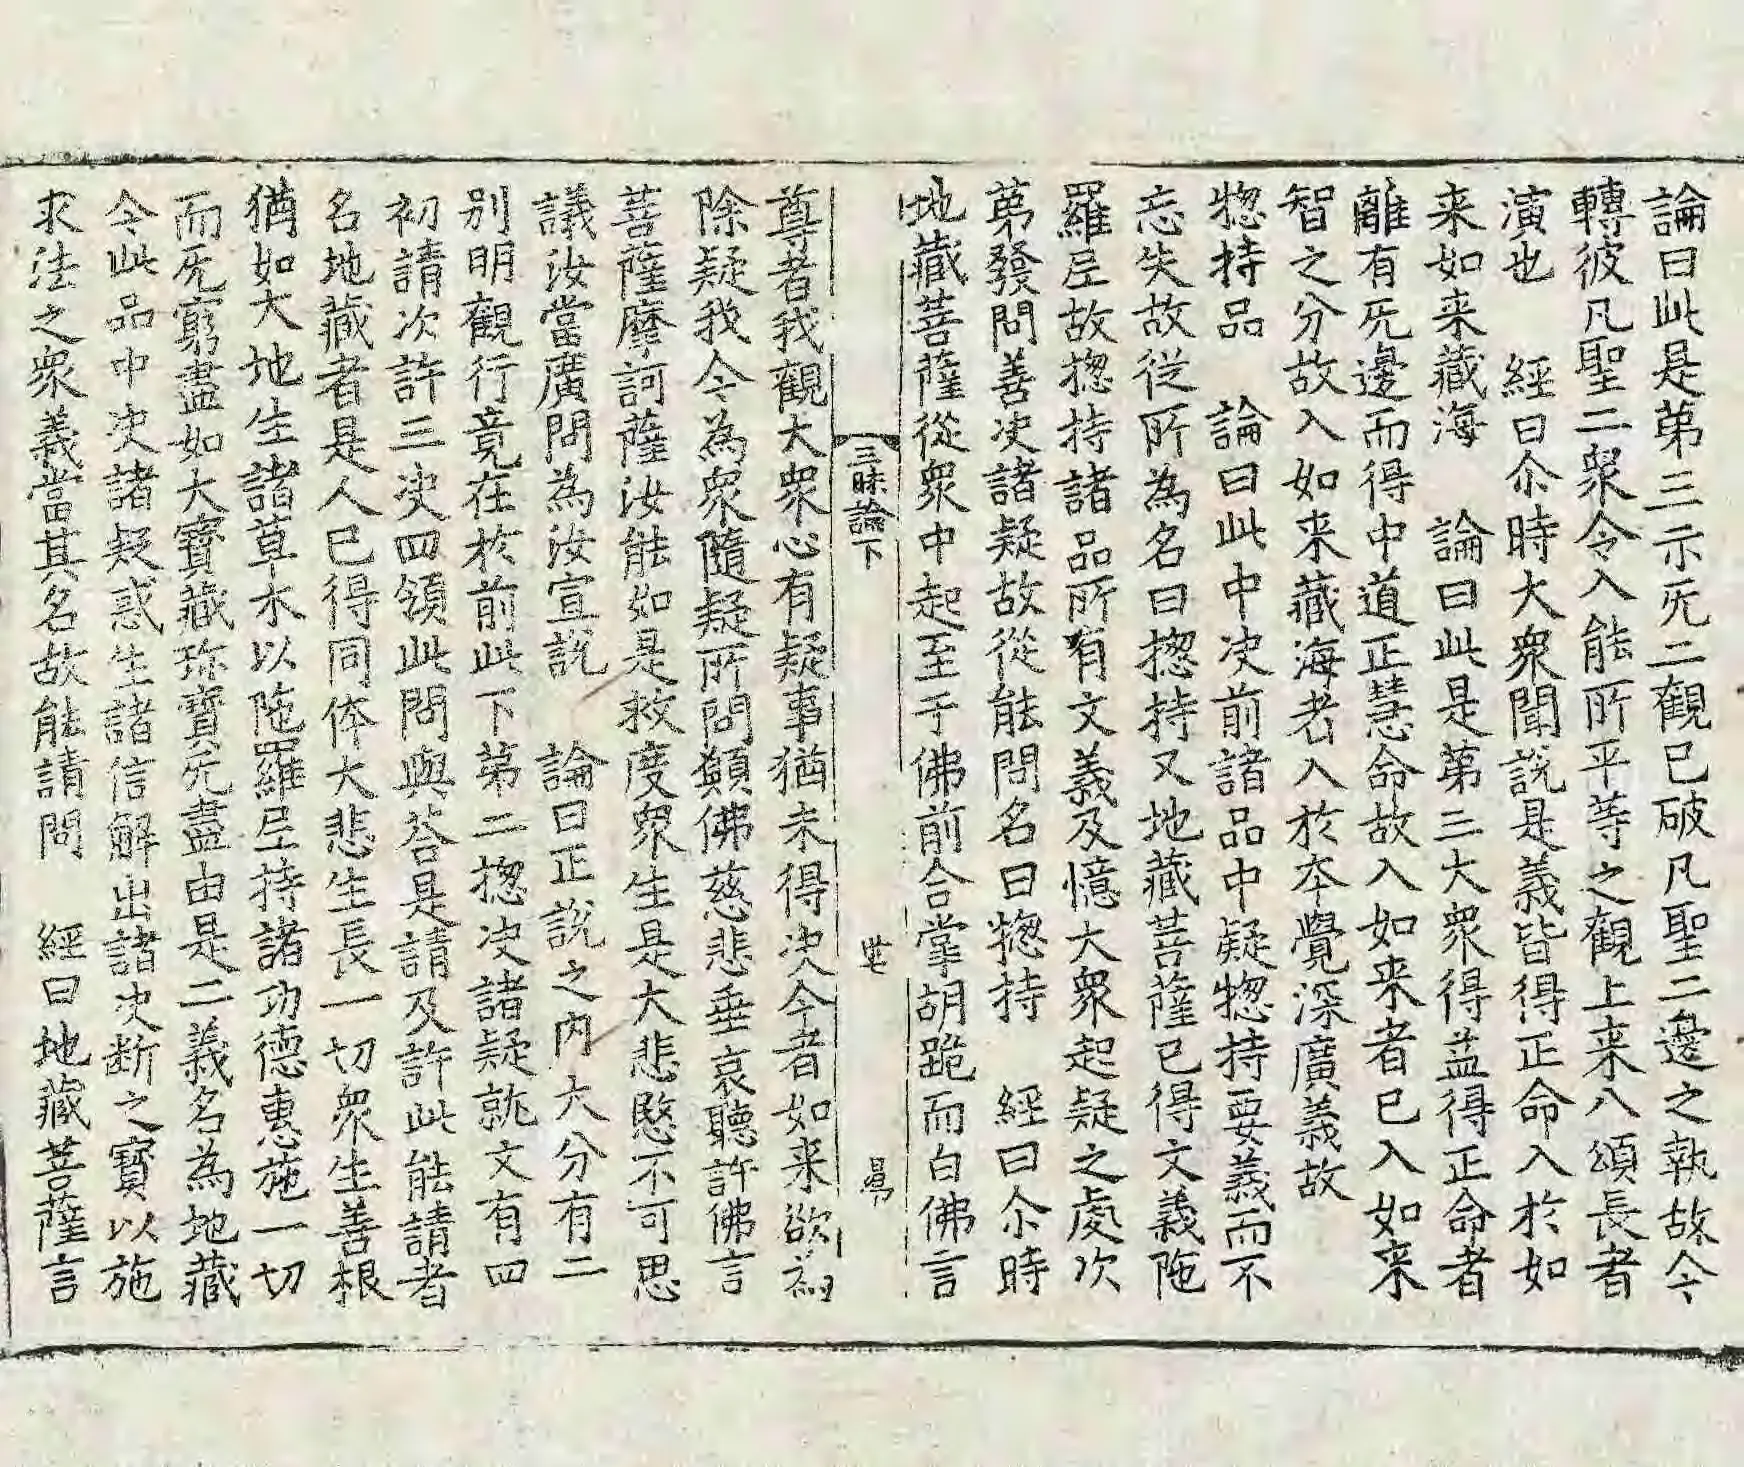 論曰此是苐三示旡二觀已破凡聖二邊之執故今
轉彼凡聖二衆令入能所平等之觀上来八頌長者
演也　經曰尒時大衆聞說是義皆得正命入於如
来如来藏海　論曰此是苐三大衆得益得正命者
離有旡邊而得中道正慧命故入如来者已入如来
智之分故入如来藏海者入於夲覺深廣義故
揔持品　論曰此中决前諸品中疑揔持要義而不
忘失故從所為名曰揔持又地藏菩薩已得文義陁
羅尼故揔持諸品所有文義及憶大衆起疑之處次
苐發問善决諸疑故從能問名曰揔持　經曰尒時
地藏菩薩從衆中起至于佛前合掌胡跪而白佛言
三昧論下　丗七
尊者我觀大衆心有疑事猶未得决今者如来欲為
除疑我今為衆隨疑所問願佛慈悲垂哀聽許佛言
菩薩摩訶薩汝能如是救度衆生是大悲愍不可思
議汝當廣問為汝宣說　論曰正說之内大分有二
别明觀行竟在於前此下苐二揔决諸疑就文有四
初請次許三决四領此問與荅是請及許此能請者
名地藏者是人已得同体大悲生長一切衆生善根
猶如大地生諸草木以陁羅尼持諸功德惠施一切
而旡窮盡如大寶藏珎寶旡盡由是二義名為地藏
今此品中决諸疑惑生諸信解出諸决断之寶以施
求法之衆義當其名故能請問　經曰地藏菩薩言